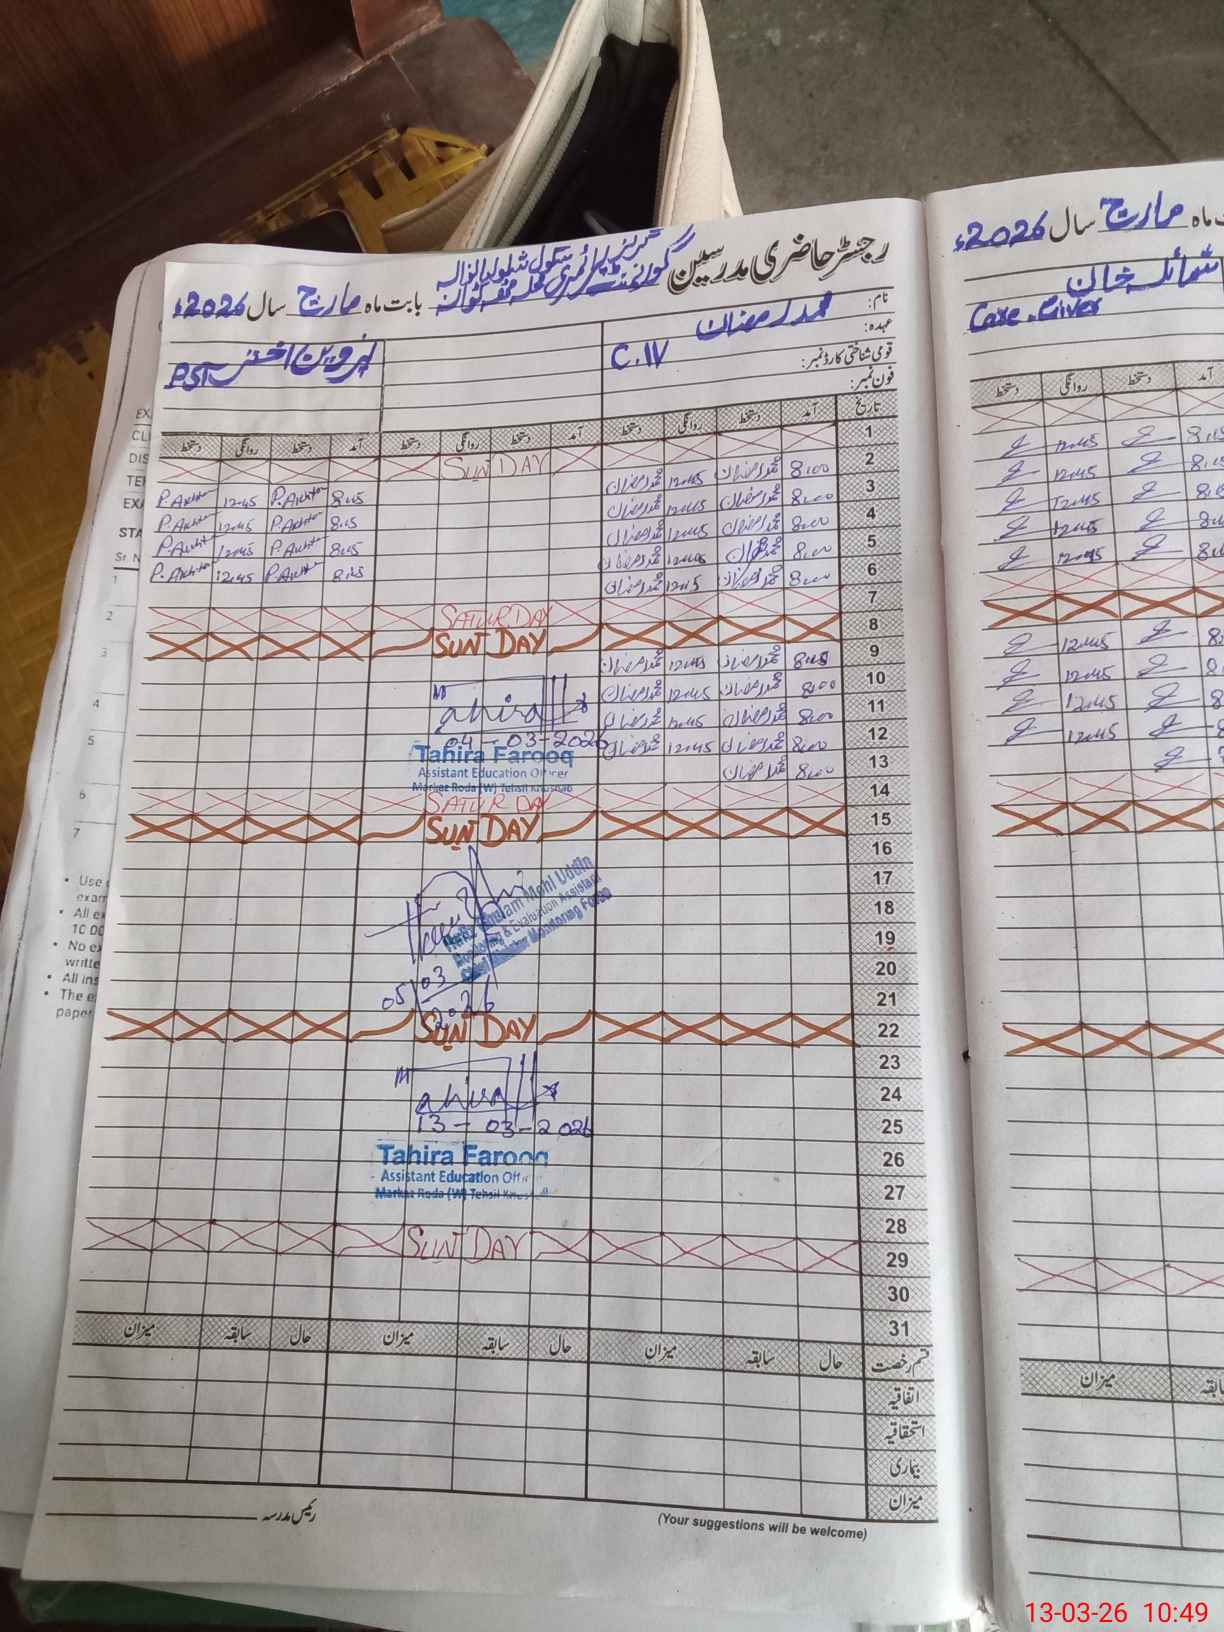 رجسٹر حاضری مدرسین گورنمنٹ گرلز پرائمری سکول بابت ماہ مارچ سال 2026ء
نام: محمد رمضان
عہدہ: C.IV
قومی شناختی کارڈ نمبر:
فون نمبر:
پروین اختر PST
تاریخ آمد دستخط روانگی دستخط آمد دستخط روانگی دستخط آمد دستخط روانگی دستخط
1 SUNDAY
2 8:00 محمد رمضان 12:45 محمد رمضان 8:45 P. Akhtar 12:45 P. Akhtar
3 8:00 محمد رمضان 12:45 محمد رمضان 8:45 P. Akhtar 12:45 P. Akhtar
4 8:00 محمد رمضان 12:45 محمد رمضان 8:45 P. Akhtar 12:45 P. Akhtar
5 8:00 12:45 محمد رمضان 8:45 P. Akhtar 12:45 P. Akhtar
6 8:00 محمد رمضان 12:45 محمد رمضان
7 SATURDAY
8 SUNDAY
9 محمد رمضان 12:45 محمد رمضان
10 8:00 محمد رمضان 12:45 محمد رمضان
11 8:00 محمد رمضان 12:45 محمد رمضان
12 8:00 محمد رمضان 12:45 محمد رمضان
13 8:00 محمد رمضان
04-03-2026
Tahira Farooq
Assistant Education Officer
Markaz Roda (W) Tehsil Khushab
14 SATURDAY
15 SUNDAY
16
17
18
19
20
21
Ghulam Mohi Uddin
Monitoring & Evaluation Assistant
Chief Minister Monitoring Force
05/03
2026
22 SUNDAY
23
24
25
26
27
28
13-03-2026
Tahira Farooq
Assistant Education Officer
Markaz Roda (W) Tehsil Khushab
29 SUNDAY
30
31
قسم رخصت حال سابقہ میزان حال سابقہ میزان حال سابقہ میزان
اتفاقیہ
استحقاقیہ
بیماری
میزان
رئیس مدرسہ
(Your suggestions will be welcome)
ماہ مارچ سال 2026ء
شمائلہ خان
Care.Giver
آمد دستخط روانگی دستخط
12:45
12:45
12:45
12:45
12:45
12:45
12:45
12:45
12:45
میزان سابقہ
13-03-26 10:49